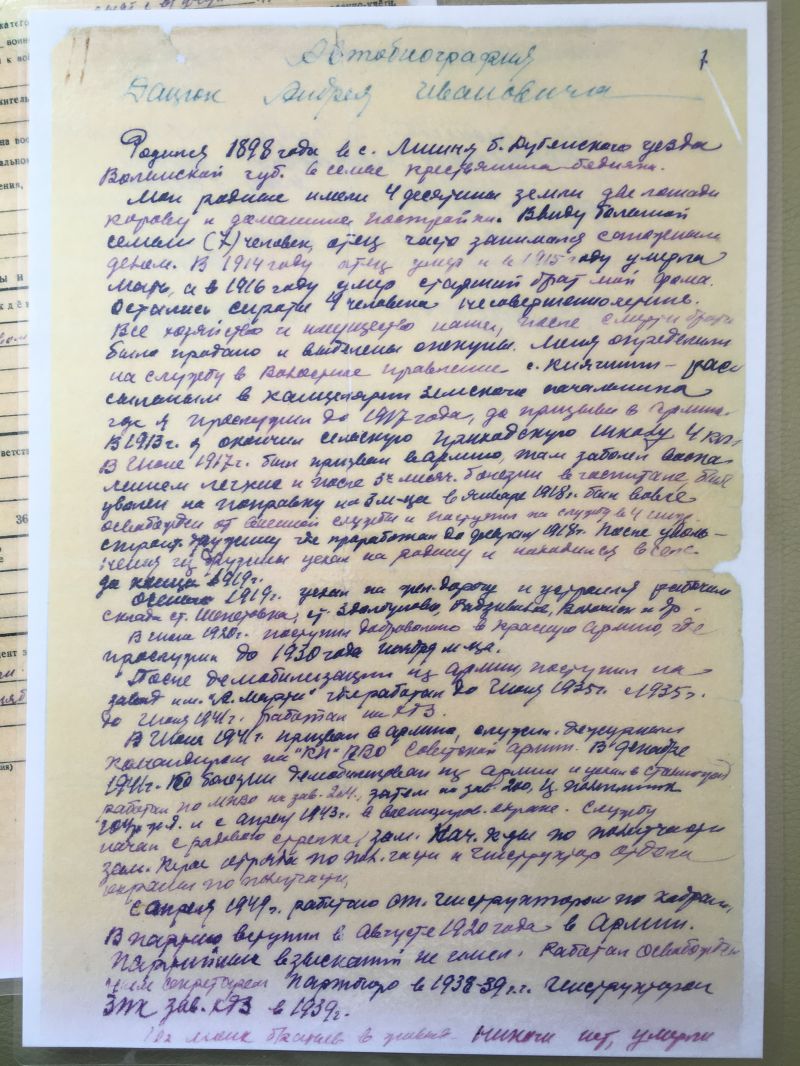 Автобиография
Дацюк Андрея Ивановича
7
Родился 1898 года в с. Лишня б. Дубенского уезда
Волынской губ. в семье крестьянина бедняка.
Мои родные имели 4 десятины земли две лошади
корову и домашние постройки. Ввиду большой
семьи (7) человек, отец часто занимался сапожным
делом. В 1914 году отец умер и в 1915 году умерла
мать, а в 1916 году умер старший брат мой Фома.
Остались сироти 4 человека несовершеннолетние.
Все хозяйство и имущество наше, после смерти брата
было продано и выделены опекуны. Меня определили
на службу в Волосное правление с. Княгинин – рас
сыльным в канцелярии Земского начальника
где я прослужил до 1917 года, до призыва в Армию.
В 1913 г. я окончил сельскую Приходскую школу 4 кл.
В Июне 1917 г. был призван в армию, там заболел воспа
лением легких и после 3х месяч. болезни в госпитале, был
уволен на поправку на 3 м-ца в январе 1918 г. был вовсе
освобожден от военной службы и поступил на службу в 4
строит. дружину где проработал до февраля 1918 г. После уволь–
нения из дружины уехал на родину и находился в селе
до конца 1919 г.
Осенью 1919 г. уехал на жел-дорогу и устроился рабочим
склада ст. Шепетовка, ст. Здолбуново, Радзивилов, и др.
В Июле 1920 г. поступил добровольно в Красную Армию, где
прослужил до 1930 года ноября м-ца.
После демобилизации из армии, поступил на
завод им. "А. Марти" где работал до Июня 1935 г. с 1935 г.
до Июня 1941 г. работал на ХТЗ.
В Июне 1941 г. призван в армию, служил дежурным
командиром на "КП" ПВО Советской армии. В декабре
1941 г. по болезни демобилизован из армии и уехал в Сталинград
работал по МПВО на зав. 264, затем на зав. 200,
и с апреля 1943 г. в охране. Службу
начал с рядового стрелка, зам. Нач. к-ды по политчасти
зам. Нач. отряда по пол. части и инструктор отдела
охраны по политчасти,
С апреля 1949 г. работаю ст. инструктором по кадрам,
В партию вступил в Августе 1920 года в Армии.
Партийных взысканий не имел. Работал Освобожден
ным секретарем Партбюро в 1938-39 г.г. Инструктором
зав. ХТЗ в 1939 г.
Из моих братьев в живых никого нет, умерли